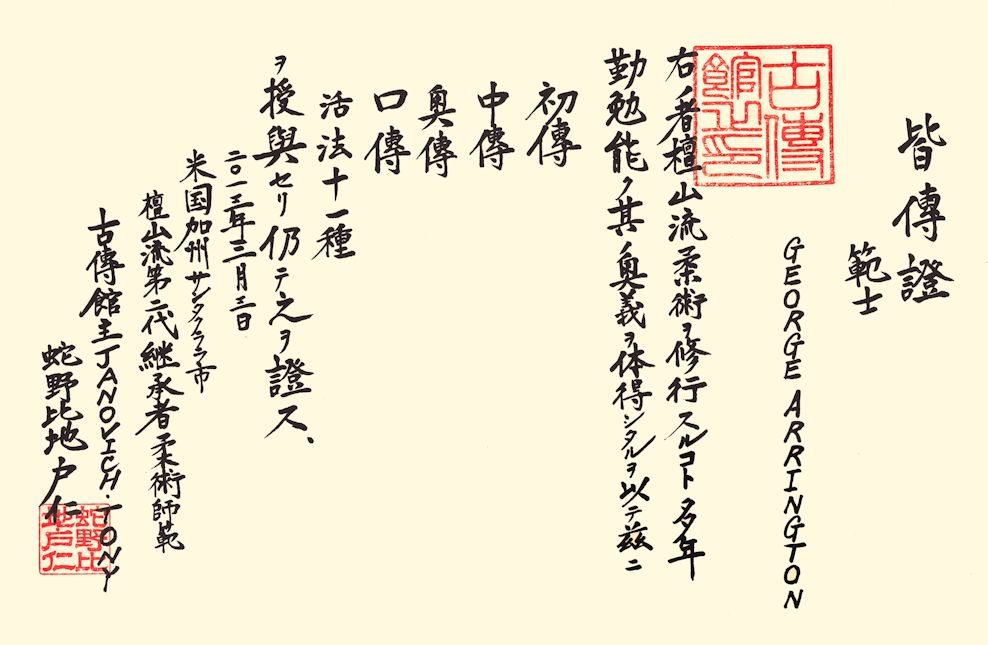 皆傳證
範士
GEORGE ARRINGTON
古傳館之印
右ノ者檀山流柔術ヲ修行スルコト多年
勤勉能ク其奥義ヲ体得シタルヲ以テ茲ニ
初傳
中傳
奥傳
口傳
活法十一種
ヲ授與セリ仍テ之ヲ證ス、
二〇一三年三月三日
米国加州サンタクララ市
檀山流第二代継承者柔術師範
古傳館主JANOVICH・TONY
蛇野比地戸仁
蛇野比地戸仁